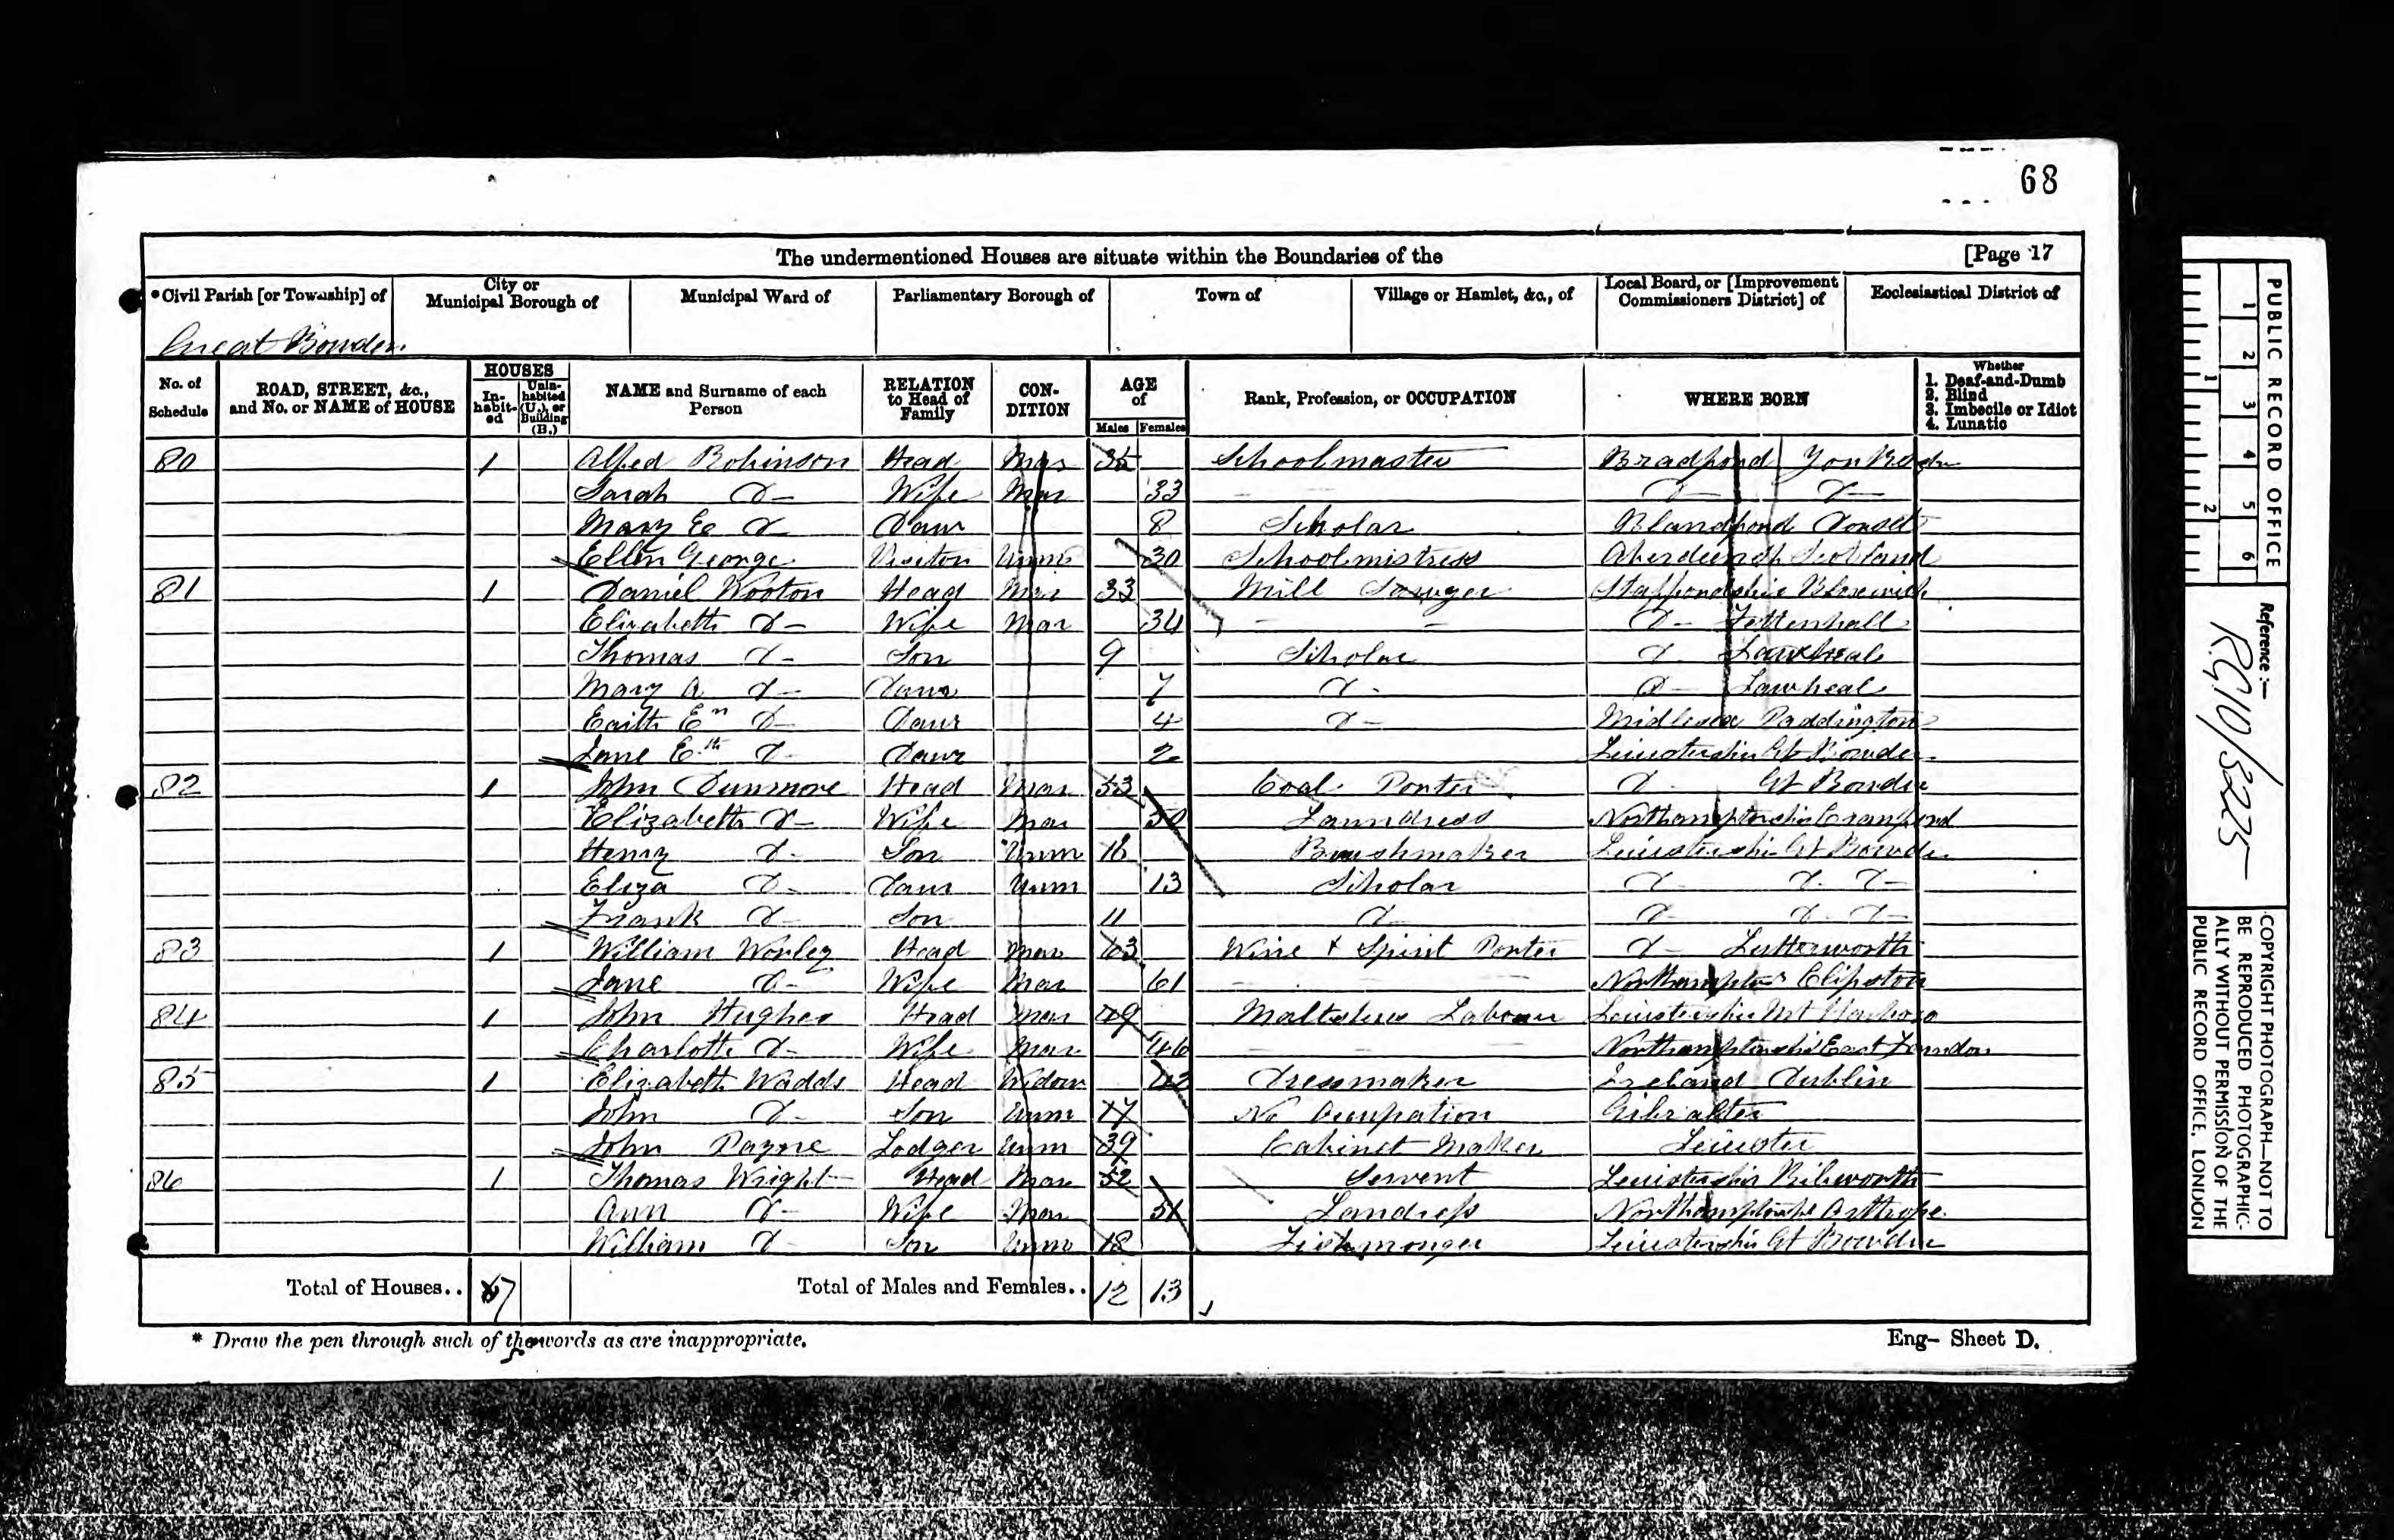 68
The undermentioned Houses are situate within the Boundaries of the [Page 17
*Civil Parish [or Township] of City or Municipal Borough of Municipal Ward of Parliamentary Borough of Town of Village or Hamlet, &c., of Local Board, or [Improvement Commissioners District] of Ecclesiastical District of
Great Bowden
No. of Schedule ROAD, STREET, &c., and No. or NAME of HOUSE HOUSES Inhabited Uninhabited (U.), or Building (B.) NAME and Surname of each Person RELATION to Head of Family CONDITION AGE of Males Females Rank, Profession, or OCCUPATION WHERE BORN Whether 1. Deaf-and-Dumb 2. Blind 3. Imbecile or Idiot 4. Lunatic
80 1 Alfred Robinson Head Mar 35 Schoolmaster Bradford
Sarah D- Wife Mar 33 D- D-
Mary E D- Daur 8 Scholar Blandford Dorset
Ellen George Visitor Unm 30 Schoolmistress Scotland
81 1 Daniel Wooton Head Mar 33 Mill Sawyer Staffordshire
Elizabeth D- Wife Mar 34 D- Tettenhall
Thomas D- Son 9 Scholar D-
Mary A D- Daur 7 D- D- Lawheal
E D- Daur 4 D- Middlesex Paddington
Jane Eth D- Daur 2 Leicestershire Gt Bowden
82 1 John Dunmore Head Mar 53 Coal Porter D- Gt Bowden
Elizabeth D- Wife Mar 50 Laundress Northamptonshire Cranford
Henry D- Son Unm 16 Brushmaker Leicestershire Gt Bowden
Eliza D- Daur Unm 13 Scholar D- D- D-
Frank D- Son 11 D- D- D- D-
83 1 William Worley Head Mar 63 Wine & Spirit Porter D- Lutterworth
Jane D- Wife Mar 61 Clipston
84 1 John Hughes Head Mar 49 Labourer Leicestershire Mt Harboro
Charlotte D- Wife Mar 46 Northamptonshire East Farndon
85 1 Elizabeth Wadds Head Widow 42 Dressmaker Ireland Dublin
John D- Son Unm 17 No Occupation Gibralter
John Payne Lodger Unm 39 Cabinet Maker Leicester
86 1 Thomas Wright Head Mar 52 Servent Leicestershire Kibworth
Ann D- Wife Mar 51 Landress
William D- Son Unm 18 Fishmonger Leicestershire Gt Bowden
Total of Houses.. 7 Total of Males and Females.. 12 13
* Draw the pen through such of the words as are inappropriate. Eng- Sheet D.
PUBLIC RECORD OFFICE
1 2 3 4 5 6
1 2
Reference :-
RG10/3225
COPYRIGHT PHOTOGRAPH—NOT TO
BE REPRODUCED PHOTOGRAPHIC-
ALLY WITHOUT PERMISSION OF THE
PUBLIC RECORD OFFICE, LONDON